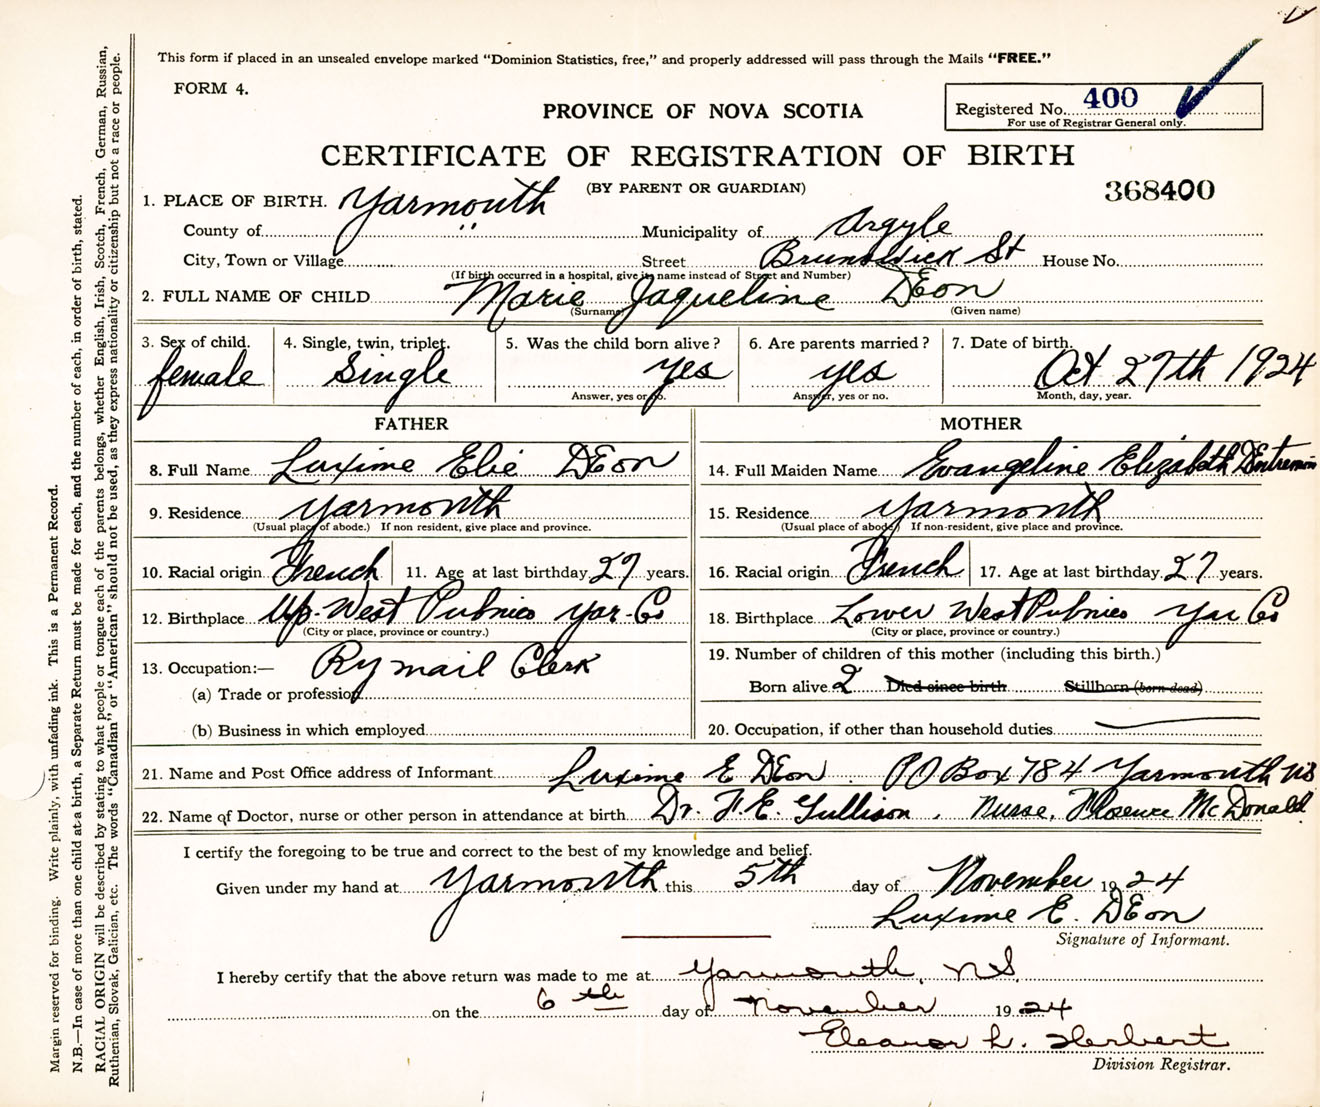 This form if placed in an unsealed envelope marked "Dominion Statistics, free," and properly addressed will pass through the Mails "FREE."
FORM 4.
PROVINCE OF NOVA SCOTIA
Registered No. 400
For use of Registrar General only.
CERTIFICATE OF REGISTRATION OF BIRTH
(BY PARENT OR GUARDIAN)
368400
1. PLACE OF BIRTH. Yarmouth
County of " Municipality of Argyle
City, Town or Village Street Brunswick St House No.
(If birth occurred in a hospital, give its name instead of Street and Number)
2. FULL NAME OF CHILD Marie Jaqueline DEon
(Surname) (Given name)
3. Sex of child. 4. Single, twin, triplet. 5. Was the child born alive? 6. Are parents married? 7. Date of birth.
female Single yes yes Oct 27th 1924
Answer, yes or no. Answer, yes or no. Month, day, year.
FATHER MOTHER
8. Full Name Luxime Elie DEon 14. Full Maiden Name Evangeline Elizabeth DEntremon
9. Residence Yarmouth 15. Residence Yarmouth
(Usual place of abode.) If non resident, give place and province. (Usual place of abode) If non-resident, give place and province.
10. Racial origin French 11. Age at last birthday 27 years. 16. Racial origin French 17. Age at last birthday 27 years.
12. Birthplace Up. West Pubnico Yar-Co 18. Birthplace Lower West Pubnico Yar Co
(City or place, province or country.) (City or place, province or country.)
13. Occupation:— Ry mail Clerk 19. Number of children of this mother (including this birth.)
(a) Trade or profession Born alive 2 Died since birth Stillborn (born dead)
(b) Business in which employed 20. Occupation, if other than household duties
21. Name and Post Office address of Informant Luxime E DEon. PO Box 784 Yarmouth NS
22. Name of Doctor, nurse or other person in attendance at birth Dr. F. E. Gullison, Nurse, Florence McDonald
I certify the foregoing to be true and correct to the best of my knowledge and belief.
Given under my hand at Yarmouth this 5th day of November 1924
Luxime E. DEon
Signature of Informant.
I hereby certify that the above return was made to me at Yarmouth, N S.
on the 6th day of November 1924
Eleanor L. Herbert
Division Registrar.
Margin reserved for binding. Write plainly, with unfading ink. This is a Permanent Record.
N.B.—In case of more than one child at a birth, a Separate Return must be made for each, and the number of each, in order of birth, stated.
RACIAL ORIGIN will be described by stating to what people or tongue each of the parents belongs, whether English, Irish, Scotch, French, German, Russian,
Ruthenian, Slovak, Galician, etc. The words "Canadian" or "American" should not be used, as they express nationality or citizenship but not a race or people.